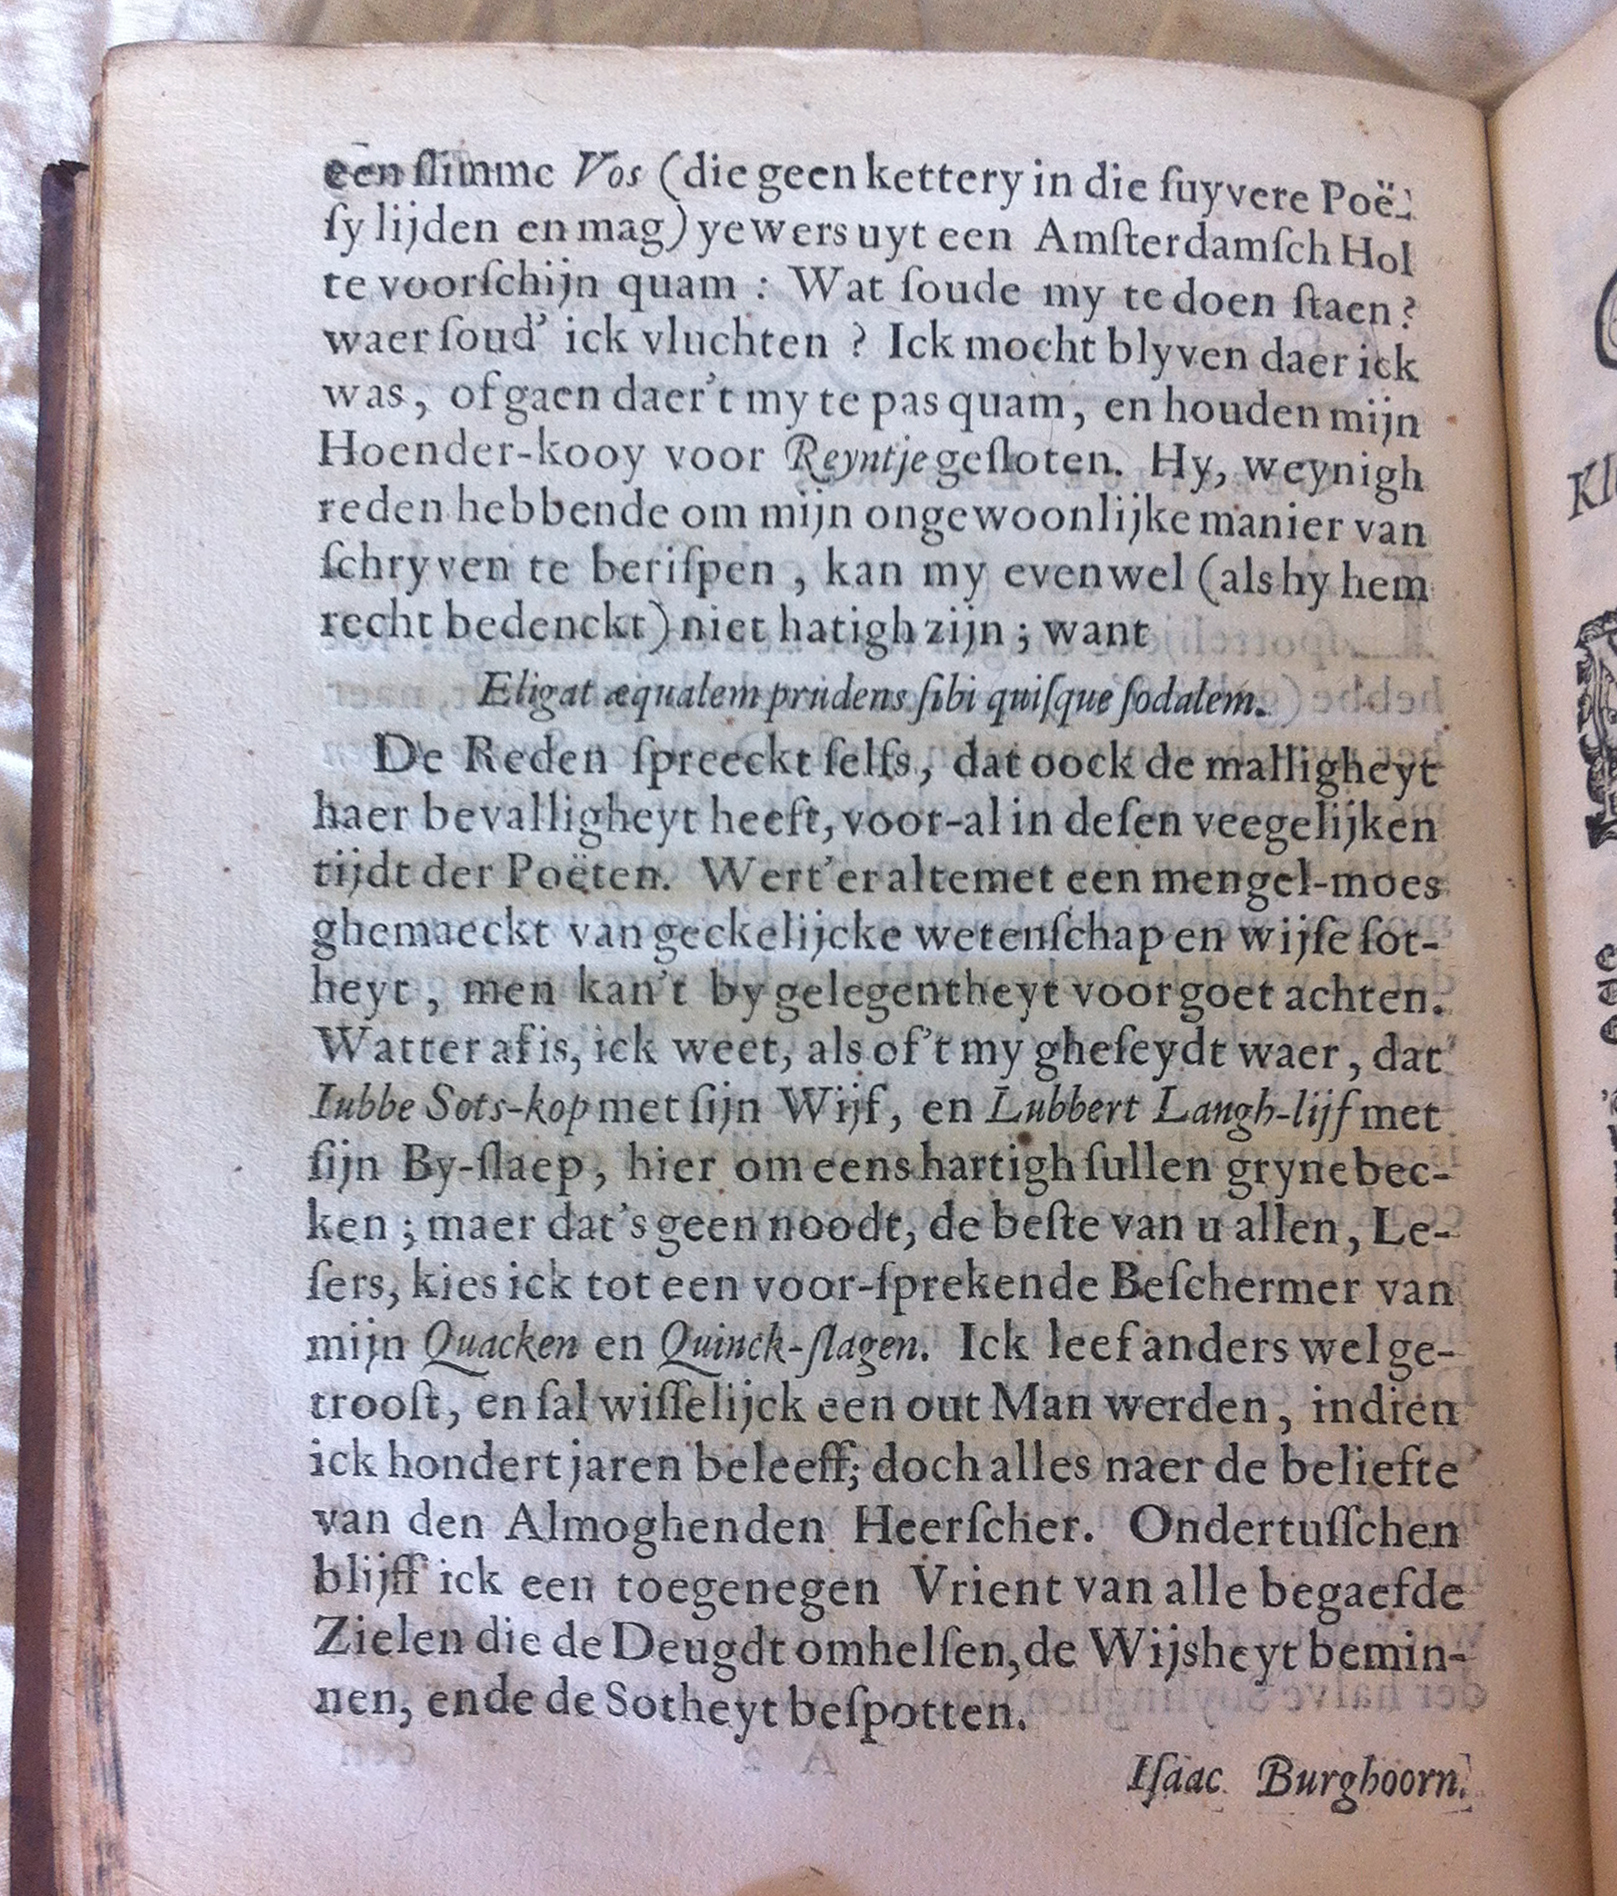 een ſlimme Vos (die geen kettery in die ſuyvere Poë-
ſy lijden en mag) yewers uyt een Amſterdamſch Hol
te voorſchijn quam : Wat ſoude my te doen ſtaen ?
waer ſoud' ick vluchten ? Ick mocht blyven daer ick
was, of gaen daer't my te pas quam, en houden mijn
Hoender-kooy voor Reyntje geſloten. Hy, weynigh
reden hebbende om mijn ongewoonlijke manier van
ſchryven te beriſpen , kan my evenwel (als hy hem
recht bedenckt) niet hatigh zijn ; want
Eligat æqualem prudens ſibi quiſque ſodalem.
De Reden ſpreeckt ſelfs, dat oock de malligheyt
haer bevalligheyt heeft, voor-al in deſen veegelijken
tijdt der Poëten. Wert'er altemet een mengel-moes
ghemaeckt van geckelijcke wetenſchap en wijſe ſot-
heyt , men kan't by gelegentheyt voor goet achten.
Watter af is, ick weet, als of't my gheſeydt waer, dat
Iubbe Sots-kop met ſijn Wijf, en Lubbert Langh-lijf met
ſijn By-ſlaep, hier om eens hartigh ſullen grynebec-
ken ; maer dat's geen noodt, de beſte van u allen, Le-
ſers, kies ick tot een voor-ſprekende Beſchermer van
mijn Quacken en Quinck-ſlagen. Ick leef anders wel ge-
trooſt, en ſal wiſſelijck een out Man werden, indien
ick hondert jaren beleeff; doch alles naer de beliefte
van den Almoghenden Heerſcher. Ondertuſſchen
blijff ick een toegenegen Vrient van alle begaefde
Zielen die de Deugdt omhelſen, de Wijsheyt bemin-
nen, ende de Sotheyt beſpotten.
Iſaac Burghoorn.